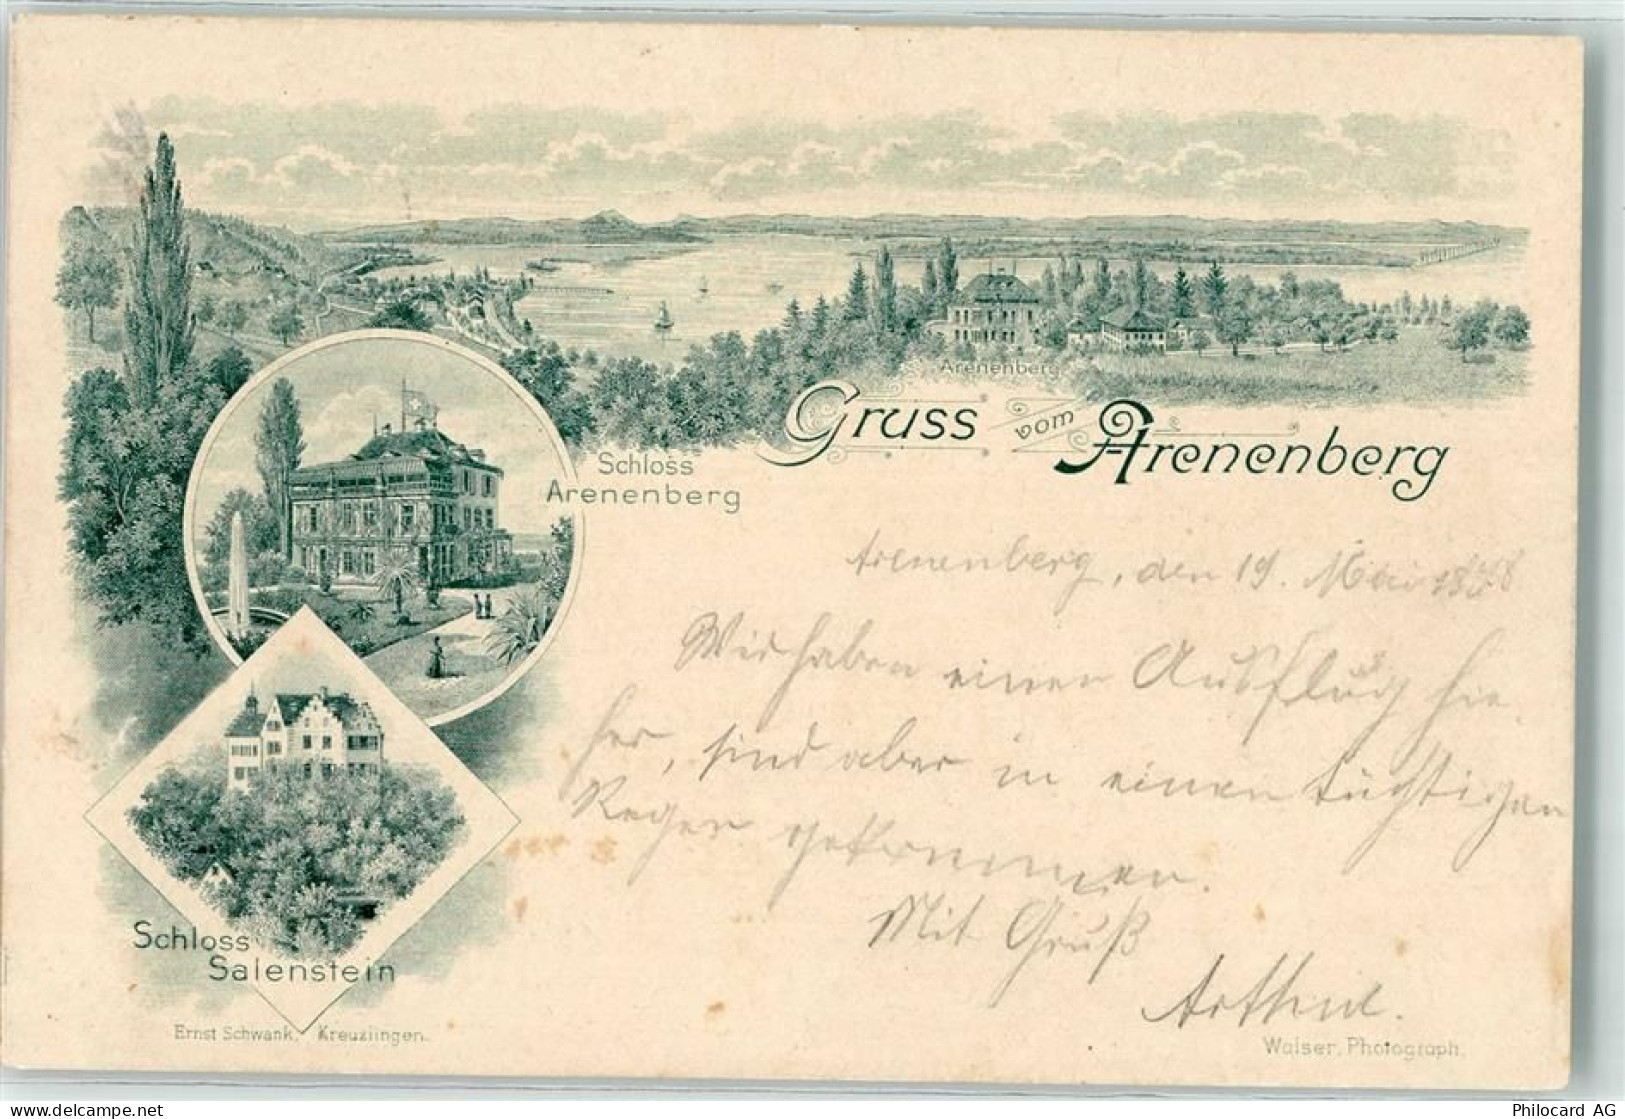 Arenenberg
Gruss vom Arenenberg
Schloss
Arenenberg
Arenenberg, den 19. Mai 1898
Wir haben einen Ausflug hie-
her, sind aber in einen tüchtigen
Regen gekommen.
Mit Gruß
Schloss
Salenstein
Ernst Schwank, Kreuzlingen.
Walser, Photograph.
delcampe.net
Philocard AG